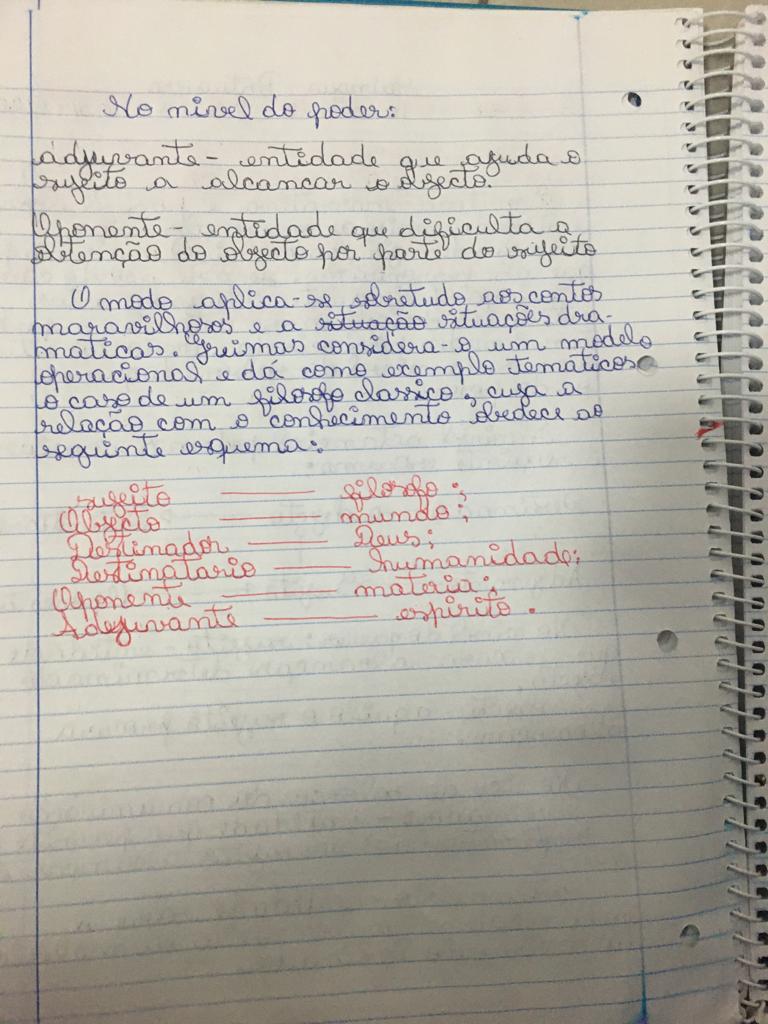 No nivel do poder:
adjuvante - entidade que ajuda o
sujeito a alcancar o objecto.
Oponente - entidade que dificulta a
obtenção do objecto por parte do sujeito
O modo aplica-se sobretudo aos contos
maravilhosos e a situação situações dra-
maticas. Greimas considera-o um modelo
operacional e dá como exemplo tematicos
o caso de um filosofo classico, cuja a
relação com o conhecimento obedece ao
seguinte esquema:
sujeito ——— filosofo;
Objecto ——— mundo;
Destinador ——— Deus;
Destinatario ——— humanidade;
Oponente ——— materia;
Adejuvante ——— espirito.